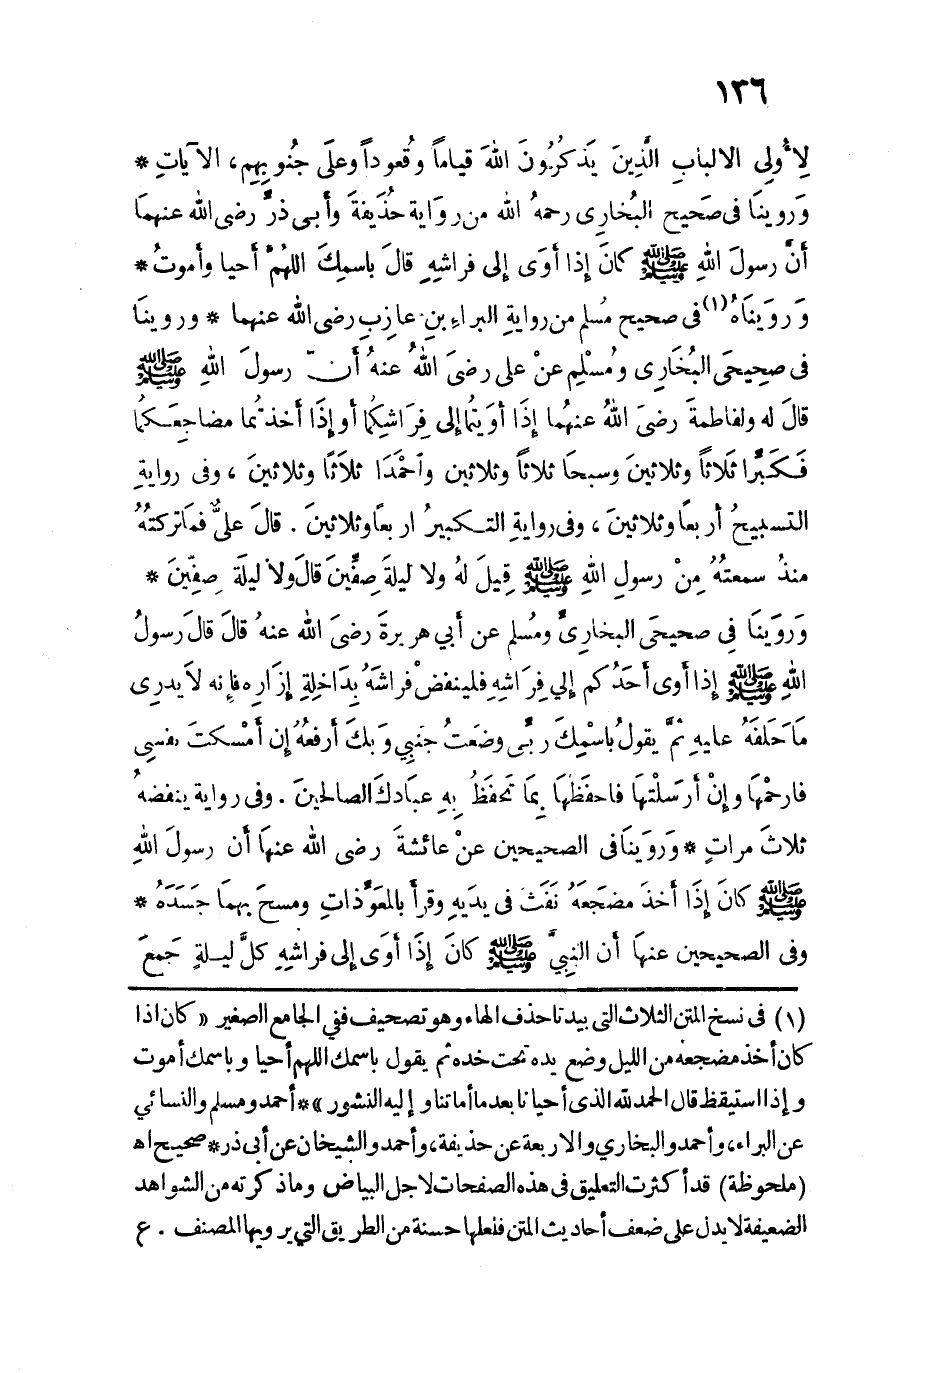 ١٣٦
لِأُولِى الالبابِ الَّذِينَ يَذكرُونَ اللهَ قياماً وقُعوداً وعلَى جُنوبِهِم، الآياتِ *
وَروينَا فى صَحيح البُخارِى رحمهُ الله من روَاية حُذَيفةَ وأبى ذرٍّ رضى الله عنهمَا
أنَّ رسولَ اللهِ ﷺ كانَ إذا أوَى إلى فراشِهِ قالَ باسمِكَ اللهُمَّ أحيا وأموتُ *
وَرَوَينَاهُ (١) فى صحيح مُسلم من روايةِ البراءِ بنِ عازِبٍ رضى الله عنهما * وروينَا
فى صحِيحَى البُخَارِى ومُسْلِمٍ عنْ على رضىَ اللهُ عنهُ أنّ رسولَ اللهِ ﷺ
قالَ له ولفاطمةَ رضىَ اللهُ عنهُما إذَا أوَيتُما إلى فِرَاشِكُما أو إذَا أخذتُما مضاجعَكُما
فَكبِّرَا ثَلاَثاً وثلاثينَ وسبحَا ثلاثاً وثلاثين وآحْمَدَا ثلاَثًا وثلاثينَ، وفى روايةٍ
التسبيحُ أربعاً وثلاثينَ، وفى روايةِ التكبيرُ اربعاً وثلاثينَ . قالَ علىٌّ فمَا تركتُهُ
منذُ سمعتهُ مِنْ رسولِ اللهِ ﷺ قِيلَ لهُ ولا ليلةَ صِفِّينَ قالَ ولاَ ليلةَ صِفِّينَ *
وَرَوَينَا فِى صحيحَى البخارِىِّ ومُسلمٍ عن أبى هريرةَ رضىَ الله عنهُ قالَ قالَ رَسولُ
اللهِ ﷺ إذَا أوى أحَدُكم إلي فِرَاشِهِ فلينفضْ فراشَهُ بِدَاخِلِةِ إزَارِه فإنه لاَ يدرِى
مَا خَلفَهُ عليهِ ثُمَّ يقولُ باسْمِكَ ربِّى وضَعتُ جَنبِي وَبكَ أرفعُهُ إن أمْسكتَ نفسِى
فارحْمْها وإنْ أرسَلْتهَا فاحفَظْهَا بِمَا تَحفَظُ بِهِ عبَادكَ الصالحينَ . وفى رواية ينفضهُ
ثلاثَ مراتٍ * وَرَوَينَا فى الصحيحين عنْ عائشةَ رضى الله عنهَا أن رسولَ اللهِ
ﷺ كانَ إذَا أخذَ مضجَعَهُ نَفَثَ فى يديهِ وقرأ بالمعَوِّذاتِ ومسحَ بهمَا جَسَدَهُ *
وفى الصحيحين عنهَا أن النبِيَّ ﷺ كانَ إذَا أوَى إلى فراشِهِ كلَّ ليلةٍ جَمعَ
(١) فى نسخ المتن الثلاث التى بيدنا حذف الهاء وهو تصحيف ففي الجامع الصغير « كان اذا
كان أخذ مضجعه من الليل وضع يده تحت خده ثم يقول باسمك اللهم أحيا وباسمك أموت
وإذا استيقظ قال الحمد لله الذى أحيانا بعد ما أماتنا وإليه النشور » * أحمد ومسلم والنسائي
عن البراء، وأحمد والبخاري والاربعة عن حذيفة، وأحمد والشيخان عن أبى ذر * صحيح اه
(ملحوظة) قد أكثرت التعليق فى هذه الصفحات لاجل البياض وماذكرته من الشواهد
الضعيفة لا يدل على ضعف أحاديث المتن فلعلها حسنة من الطريق التي يرويها المصنف . ع